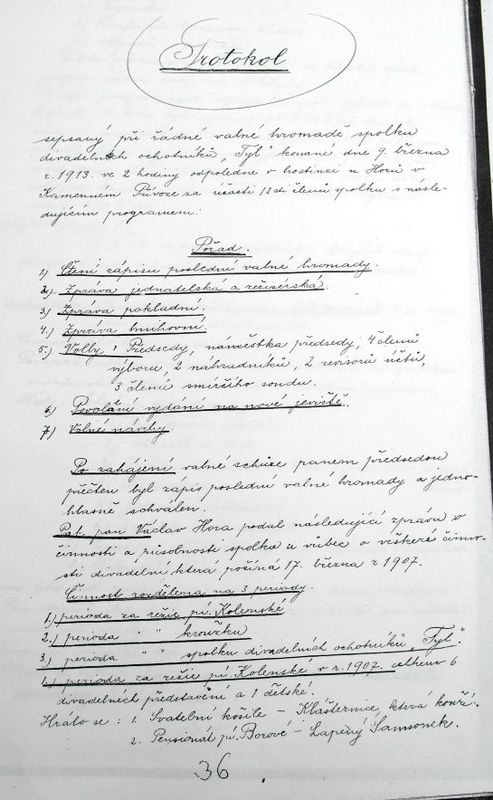 Protokol
sepsaný při řádné valné hromadě spolku
divadelních ochotníků „Tyl" konané dne 9. března
r. 1913. ve 2 hodiny odpoledne v hostinci u Horů v
Kamenném Přívoze za účasti 12ti členů spolku s násle-
dujícím programem:
Pořad.
1.) Čtení zápisu poslední valné hromady.
2.) Zpráva jednatelská a režisérská.
3.) Zpráva pokladní.
4.) Zpráva knihovní.
5.) Volby: Předsedy, náměstka předsedy, 4 členů
výboru, 2 náhradníků, 2 revisorů účtů,
3 členů smírčího soudu.
6.) Povolání vydání na nové jeviště.
7.) Volné návrhy.
Po zahájení valné schůze panem předsedou
přečten byl zápis poslední valné hromady a jedno-
hlasně schválen.
pan Václav Hora podal následující zprávu o
činnosti a působnosti spolku a vůbec o veškeré činno-
sti divadelní která počíná 17. března r 1907.
Činnost rozdělena na 3 periody.
1.) perioda za režie pí. Kolenské
2.) perioda " " kroužku
3) perioda " " spolku divadelních ochotníků „Tyl".
1.) perioda za režie pí. Kolenské v r. 1907. celkem 6
divadelních představění a 1 dětské.
Hrálo se: 1. Svatební košile – Klášternice, která kouří.
2. Pensionát pí. Borové – Lapený Samsonek.
36